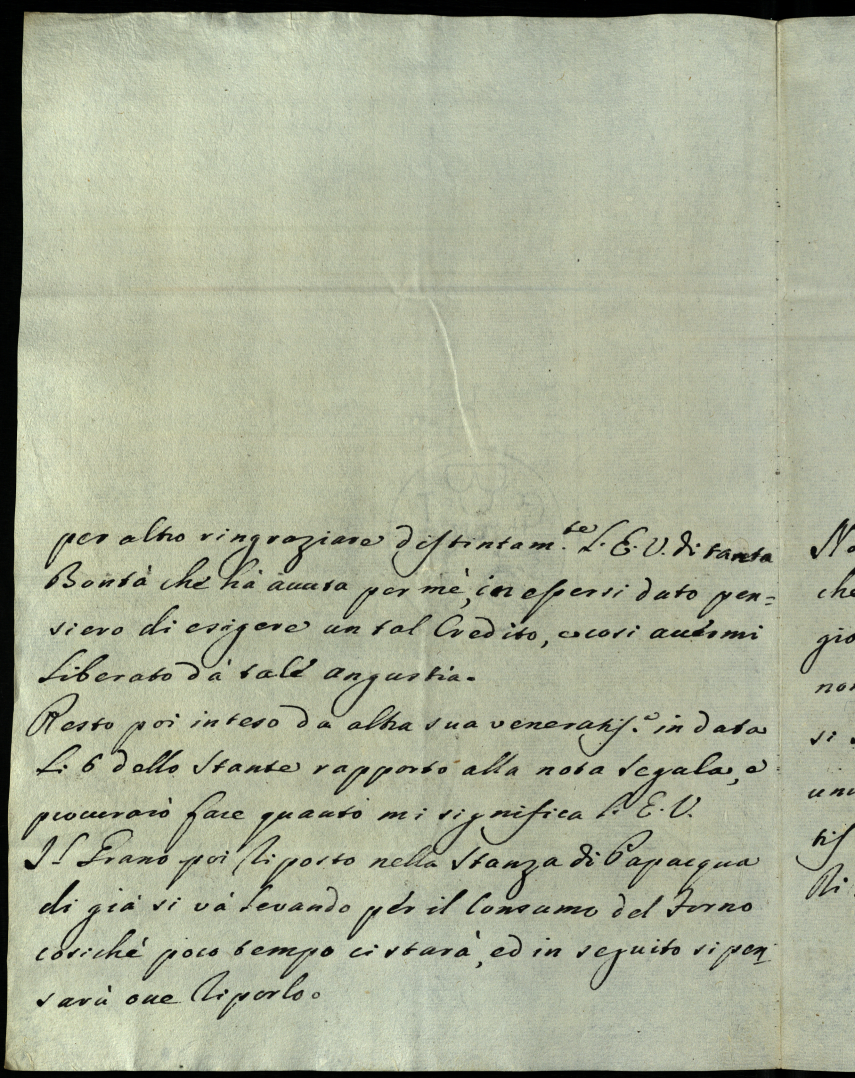 per altro ringraziare distintam.te L. E. V. di tanta
Bontà che hà avuta per mè, in essersi dato pen=
siero di esigere un tal Credito, e cosi avermi
Liberato dà tale angustia.
Resto poi inteso da altra sua veneratis.a in data
Li 6 dello Stante rapporto alla nota Segala, e
procurarò fare quanto mi significa L. E. V.
Il Grano poi riposto nella Stanza di Papacqua
di già si và Levando per il Consumo del Forno
cosiché poco tempo ci starà, ed in seguito si pen=
sarà ove riporlo.
No
che
gio
non
si
una
tis
Ri